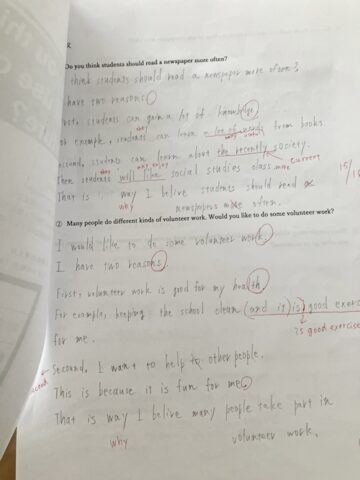 Do you think students should read a newspaper more often?
think students should read a newspaper more often?
have two reasons.
students can gain a lot of knowledge.
or example, students can learn a lot of words from books.
they
many useful
econd, students can learn about the recently society.
current
Then students will like social studies class more
may enjoy
15/16
That is way I belive students should read a
why
newspapers more often.
② Many people do different kinds of volunteer work. Would you like to do some volunteer work?
I would like to do some volunteer work.
I have two reasons.
First, volunteer work is good for my health.
For example, keeping the school clean (and it) is good exerc
is good exercise
for me.
Second, I want to help to other people.
This is because it is fun for me.
That is way I belive many people take part in
why
volunteer work.